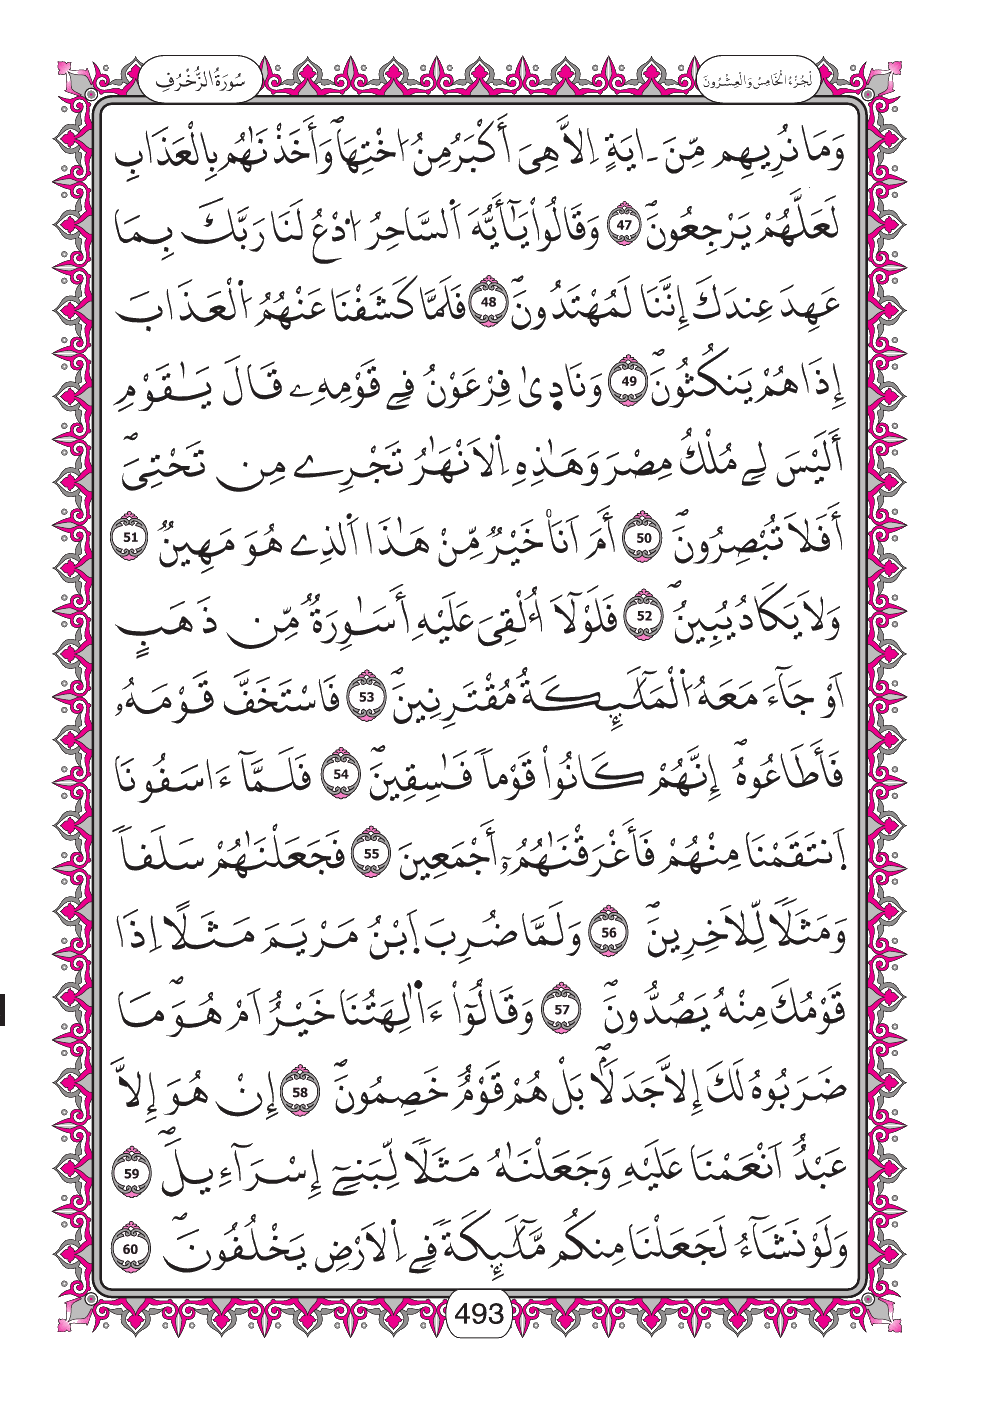 سُورَةُ الزُّخْرُفِ
الجُزْءُ الْخَامِسُ وَالْعِشْرُونَ
وَمَا نُرِيهِم مِّنَ ـ ايَةٍ اِلاَّ هِيَ أَكْبَرُ مِنُ اخْتِهَاۖ وَأَخَذْنَٰهُم بِالْعَذَابِ
لَعَلَّهُمْ يَرْجِعُونَۖ 47 وَقَالُواْ يَٰٓأَيُّهَ اَ۬لسَّاحِرُ اُ۟دْعُ لَنَا رَبَّكَ بِمَا
عَهِدَ عِندَكَ إِنَّنَا لَمُهْتَدُونَۖ 48 فَلَمَّا كَشَفْنَا عَنْهُمُ اُ۬لْعَذَابَ
إِذَا هُمْ يَنكُثُونَۖ 49 وَنَادٜىٰ فِرْعَوْنُ فِے قَوْمِهِۦ قَالَ يَٰقَوْمِ
أَلَيْسَ لِے مُلْكُ مِصْرَ وَهَٰذِهِ اِ۬لَانْهَٰرُ تَجْرِے مِن تَحْتِيَۖ
أَفَلَا تُبْصِرُونَۖ 50 أَمَ اَنَا۠ خَيْرٌ مِّنْ هَٰذَا اَ۬لذِے هُوَ مَهِينٌ 51
وَلَا يَكَادُ يُبِينُۖ 52 فَلَوْلَآ أُلْقِيَ عَلَيْهِ أَسَٰوِرَةٌ مِّن ذَهَبٍ
اَوْ جَآءَ مَعَهُ اُ۬لْمَلَٰٓئِكَةُ مُقْتَرِنِينَۖ 53 فَاسْتَخَفَّ قَوْمَهُۥ
فَأَطَاعُوهُۖ إِنَّهُمْ كَانُواْ قَوْماً فَٰسِقِينَۖ 54 فَلَمَّآ ءَاسَفُونَا
اَ۪نتَقَمْنَا مِنْهُمْ فَأَغْرَقْنَٰهُمُۥٓ أَجْمَعِينَ 55 فَجَعَلْنَٰهُمْ سَلَفاً
وَمَثَلًا لِّلَاخِرِينَۖ 56 وَلَمَّا ضُرِبَ اَ۪بْنُ مَرْيَمَ مَثَلًا اِذَا
قَوْمُكَ مِنْهُ يَصُدُّونَۖ 57 وَقَالُوٓاْ ءَا۬لِهَتُنَا خَيْرٌ اَمْ هُوَۖ مَا
ضَرَبُوهُ لَكَ إِلاَّ جَدَلًاۢۖ بَلْ هُمْ قَوْمٌ خَصِمُونَۖ 58 إِنْ هُوَ إِلاَّ
عَبْدٌ اَنْعَمْنَا عَلَيْهِ وَجَعَلْنَٰهُ مَثَلًا لِّبَنِےٓ إِسْرَآءِيلَۖ 59
وَلَوْ نَشَآءُ لَجَعَلْنَا مِنكُم مَّلَٰٓئِكَةً فِے اِ۬لَارْضِ يَخْلُفُونَۖ 60
493